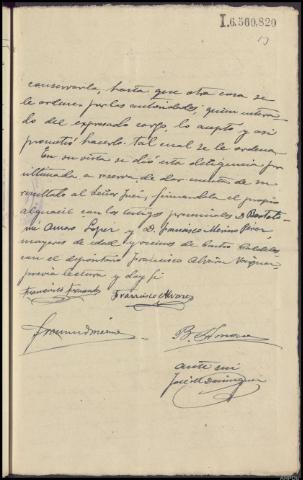 I.6.560.820
conservarla, hasta que otra cosa se
le ordene por las autoridades; quien entera-
do del expresado cargo, lo acepto y así
prometió hacerlo tal cual se le ordena.
En su vista se dió esta diligencia por
ultimada, a reserva de dar cuenta de su
resultado al Señor Juez, firmándola el propio
alguacil con los testigos presenciales D. Bartolo-
mé López y D. Francisco
mayores de edad y vecinos de
con el depositario Francisco
previa lectura y doy fé
Francisco Francisco Alvarez
B.
ante mi
José M Dominguez